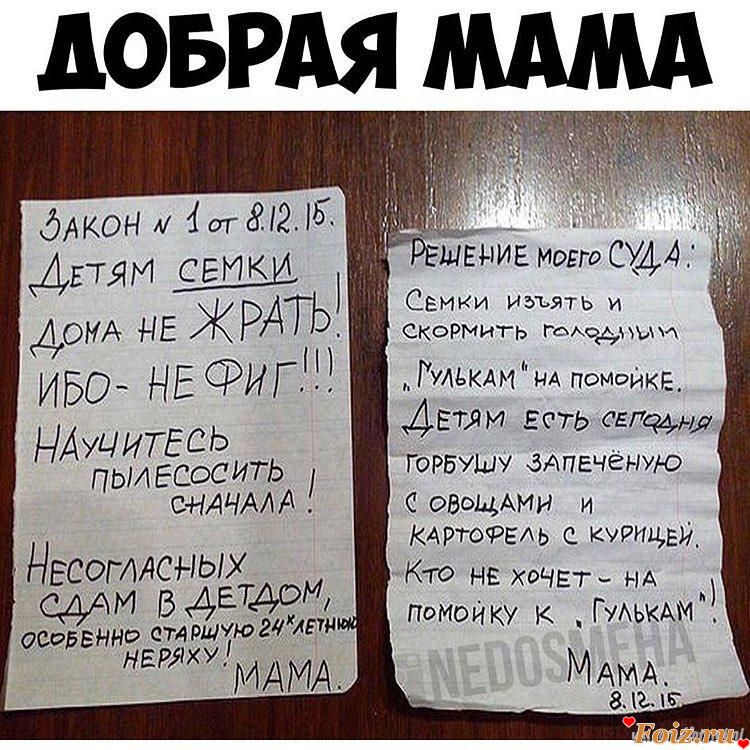 ДОБРАЯ МАМА
ЗАКОН N 1 от 8.12.15.
ДЕТЯМ СЕМКИ
ДОМА НЕ ЖРАТЬ!
ИБО - НЕ ФИГ!!!
НАУЧИТЕСЬ
ПЫЛЕСОСИТЬ
СНАЧАЛА!
НЕСОГЛАСНЫХ
СДАМ В ДЕТДОМ,
ОСОБЕННО СТАРШУЮ 24х ЛЕТНЮЮ
НЕРЯХУ!
МАМА.
РЕШЕНИЕ МОЕГО СУДА:
СЕМКИ ИЗЪЯТЬ И
СКОРМИТЬ ГОЛОДНЫМ
„ГУЛЬКАМ" НА ПОМОЙКЕ.
ДЕТЯМ ЕСТЬ СЕГОДНЯ
ГОРБУШУ ЗАПЕЧЁНУЮ
С ОВОЩАМИ И
КАРТОФЕЛЬ С КУРИЦЕЙ.
КТО НЕ ХОЧЕТ - НА
ПОМОЙКУ К „ГУЛЬКАМ"!
МАМА.
8.12.15
NEDOSMEHA
Foiz.ru